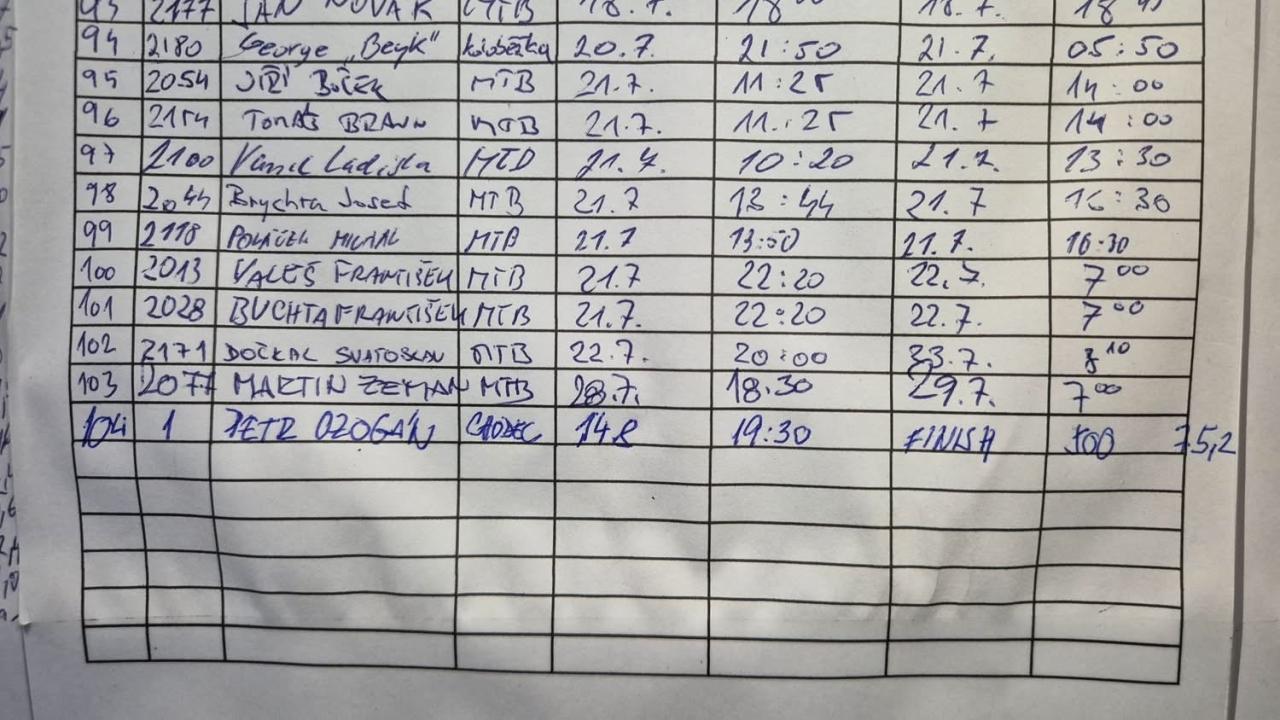 93 2177 JAN NOVÁK MTB 18.7. 18 18.7. 18
94 2180 George „Beyk“ koloběžka 20.7. 21:50 21.7. 05:50
95 2054 JIŘÍ MTB 21.7. 11:25 21.7 14:00
96 2154 TOMÁŠ BRAUN MTB 21.7. 11:25 21.7 14:00
97 2100 MTB 21.7. 10:20 21.7. 13:30
98 2044 Brychta Josef MTB 21.7 13:44 21.7 16:30
99 2118 POLÁČEK MICHAL MTB 21.7 13:50 21.7. 16:30
100 2013 VALEŠ FRANTIŠEK MTB 21.7 22:20 22.7. 7 00
101 2028 BUCHTA FRANTIŠEK MTB 21.7. 22:20 22.7. 7 00
102 2171 DOČKAL SVATOSLAV MTB 22.7. 20:00 23.7. 8 10
103 2077 MARTIN ZEMAN MTB 28.7. 18.30 29.7. 7 00
104 1 PETR OZOGÁN CHODEC 14 8 19:30 FINISH 500 75,2